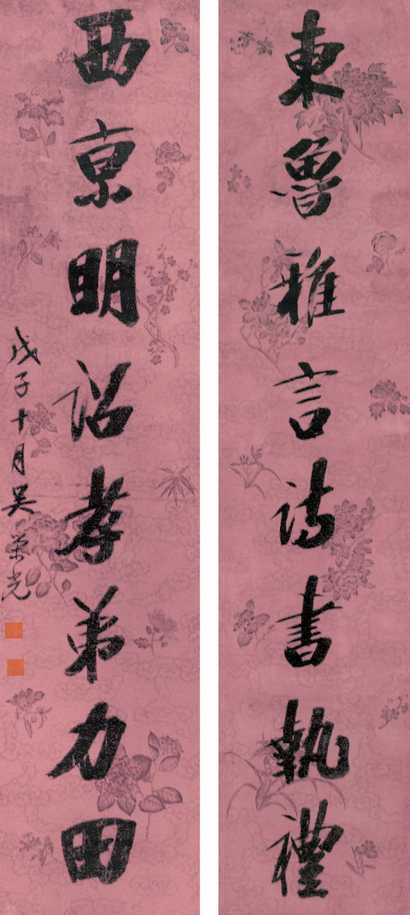 東魯雅言詩書執禮
西京明詔孝弟力田
戊子十月吳榮光